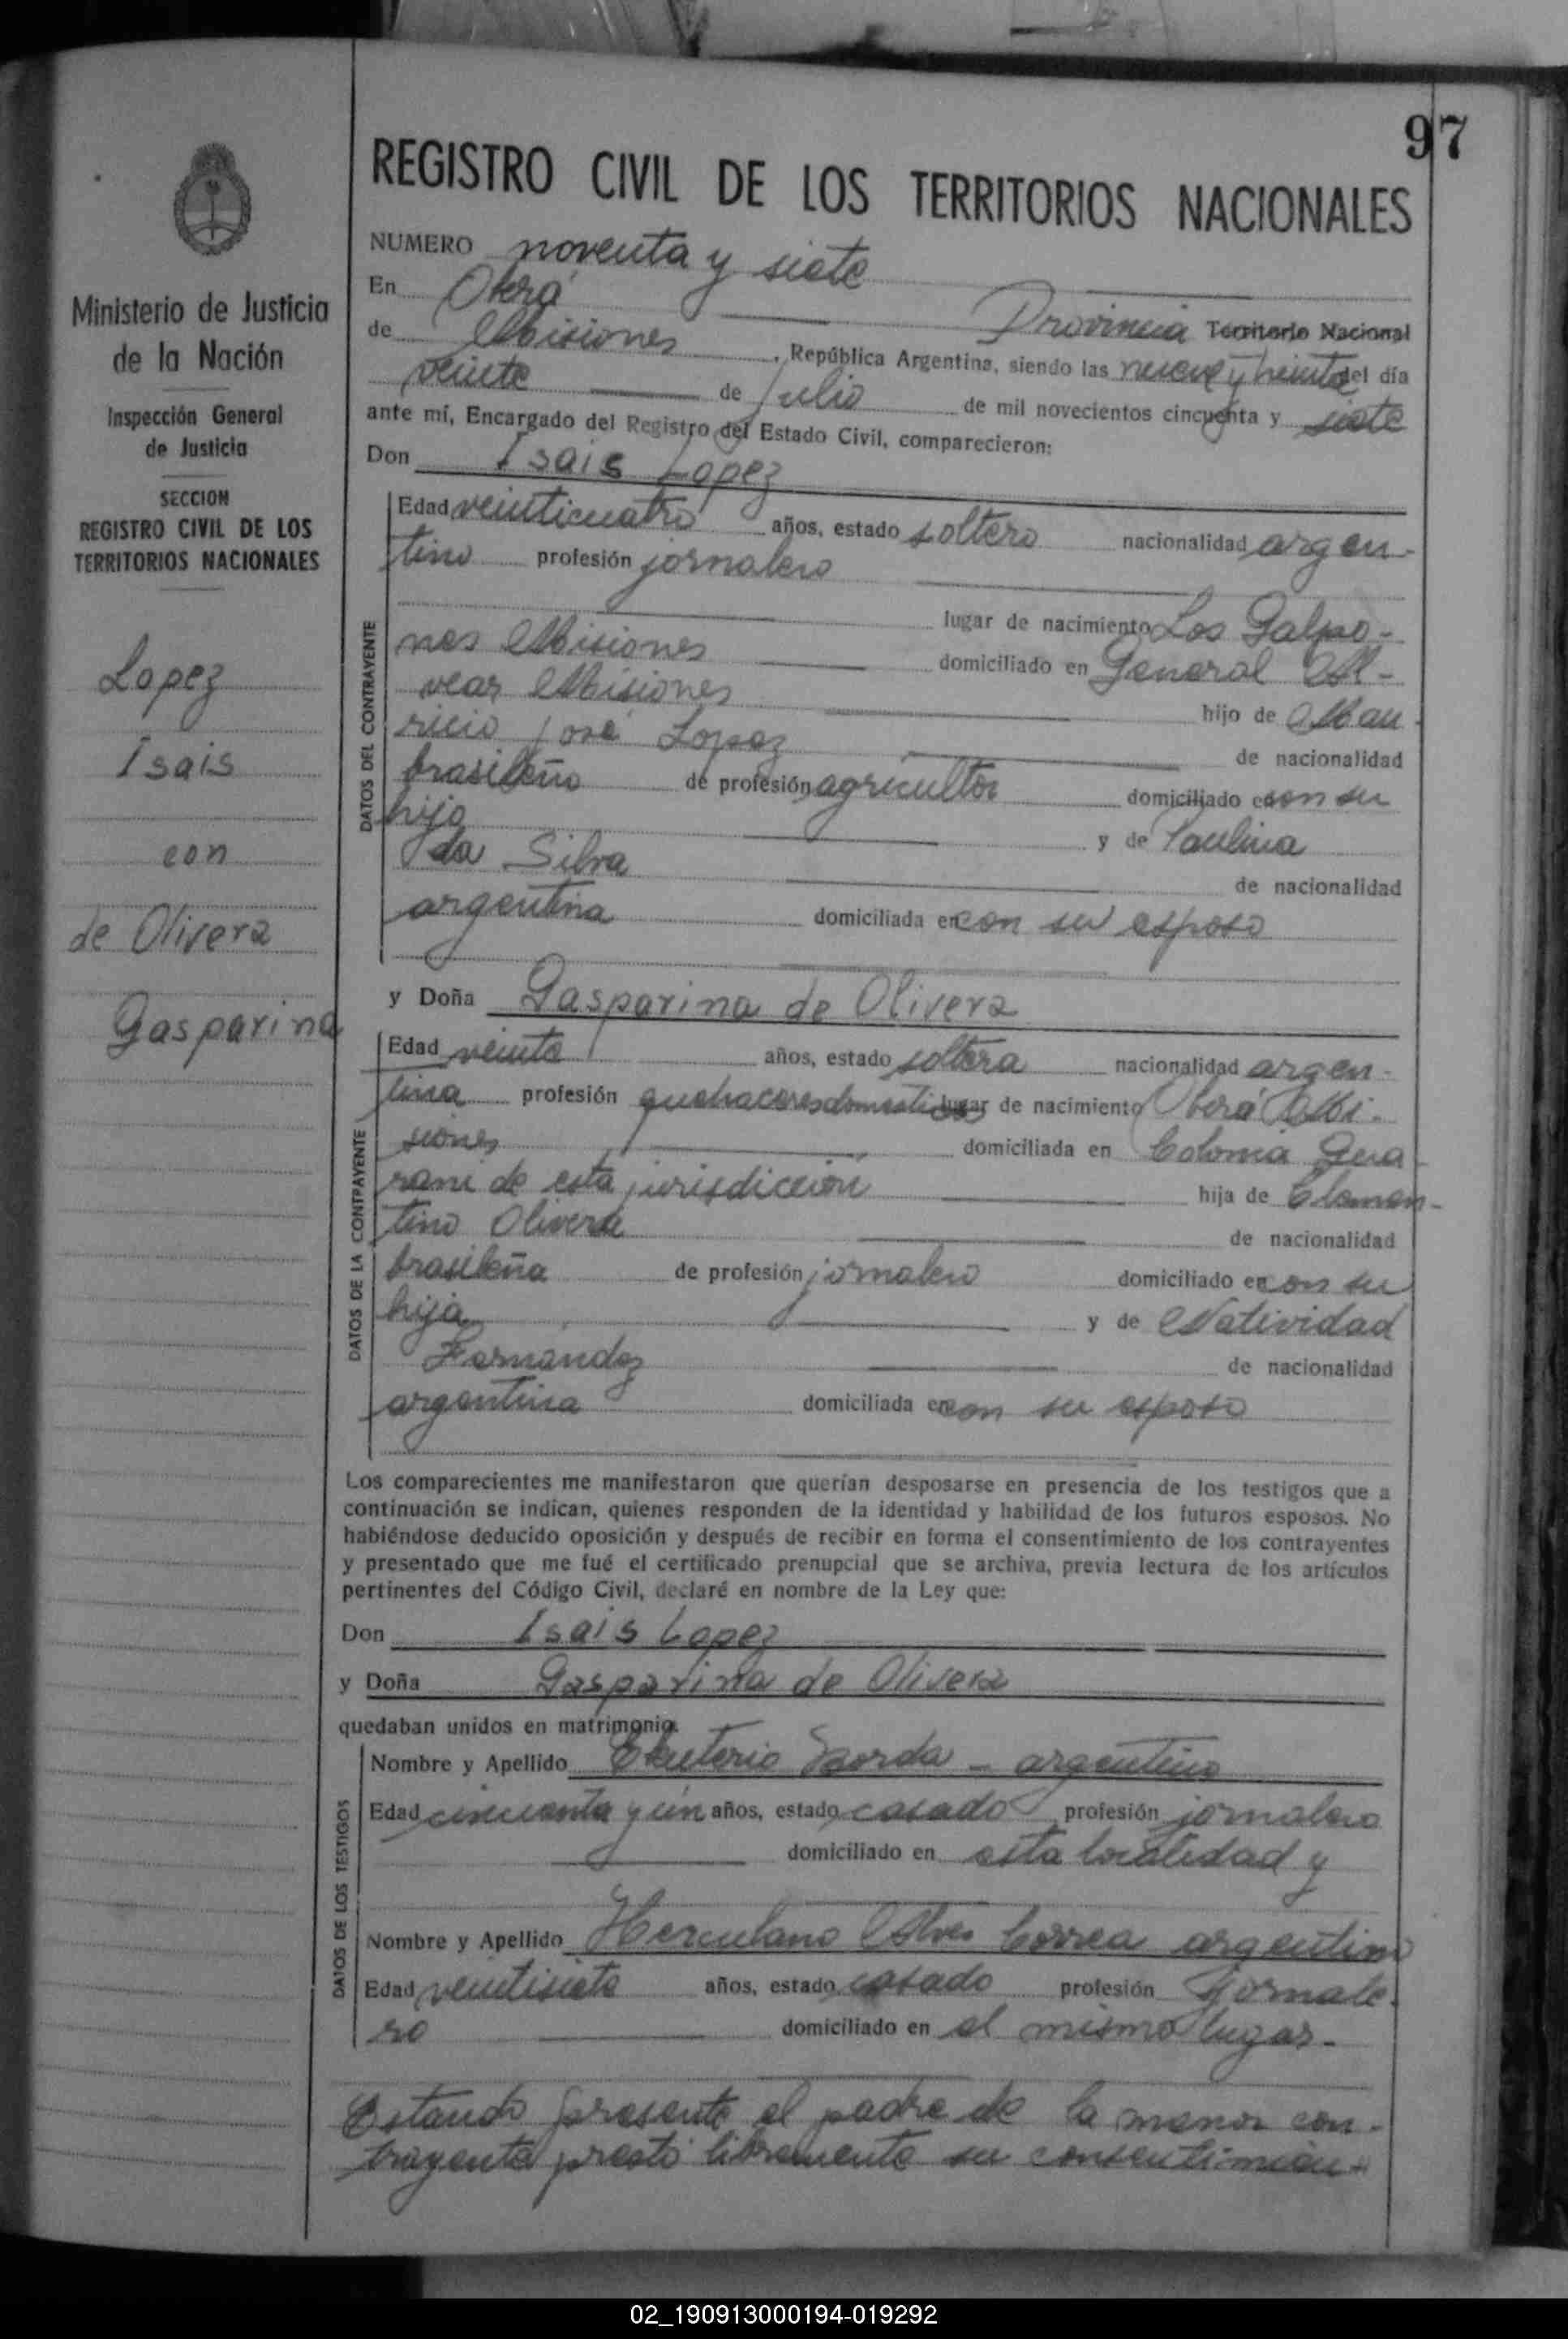 97
REGISTRO CIVIL DE LOS TERRITORIOS NACIONALES
NUMERO noventa y siete
En Oberá
Provincia Territorio Nacional
de Misiones , República Argentina, siendo las nueve y treinta del día
veinte de Julio de mil novecientos cincuenta y siete
ante mí, Encargado del Registro del Estado Civil, comparecieron:
Don Isais Lopez
Edad veinticuatro años, estado soltero nacionalidad argen-
tino profesión jornalero
lugar de nacimiento Los Galpo-
nes Misiones domiciliado en General Al-
vear Misiones hijo de Mau-
ricio José Lopez de nacionalidad
brasileño de profesión agricultor domiciliado en con su
hijo y de Paulina
da Silva de nacionalidad
argentina domiciliada en con su esposo
y Doña Gasparina de Olivera
Edad veinte años, estado soltera nacionalidad argen-
tina profesión quehaceres domesticos lugar de nacimiento Oberá Mi-
siones domiciliada en Colonia Gua-
rani de esta jurisdicción hija de Clemen-
tino Olivera de nacionalidad
brasileña de profesión jornalero domiciliado en con su
hija y de Natividad
Fernández de nacionalidad
argentina domiciliada en con su esposo
Los comparecientes me manifestaron que querían desposarse en presencia de los testigos que a
continuación se indican, quienes responden de la identidad y habilidad de los futuros esposos. No
habiéndose deducido oposición y después de recibir en forma el consentimiento de los contrayentes
y presentado que me fué el certificado prenupcial que se archiva, previa lectura de los artículos
pertinentes del Código Civil, declaré en nombre de la Ley que:
Don Isais Lopez
y Doña Gasparina de Olivera
quedaban unidos en matrimonio.
Nombre y Apellido Eleuterio Borda - argentino
Edad cincuenta y un años, estado casado profesión jornalero
domiciliado en esta localidad y
Nombre y Apellido Herculano Alves Correa argentino
Edad veintisiete años, estado casado profesión jornale-
ro domiciliado en el mismo lugar.
Estando presente el padre de la menor con-
trayente prestó libremente su consentimien-
DATOS DEL CONTRAYENTE
DATOS DE LA CONTRAYENTE
DATOS DE LOS TESTIGOS
Ministerio de Justicia
de la Nación
Inspección General
de Justicia
SECCION
REGISTRO CIVIL DE LOS
TERRITORIOS NACIONALES
Lopez
Isais
con
de Olivera
Gasparina
02_190913000194-019292